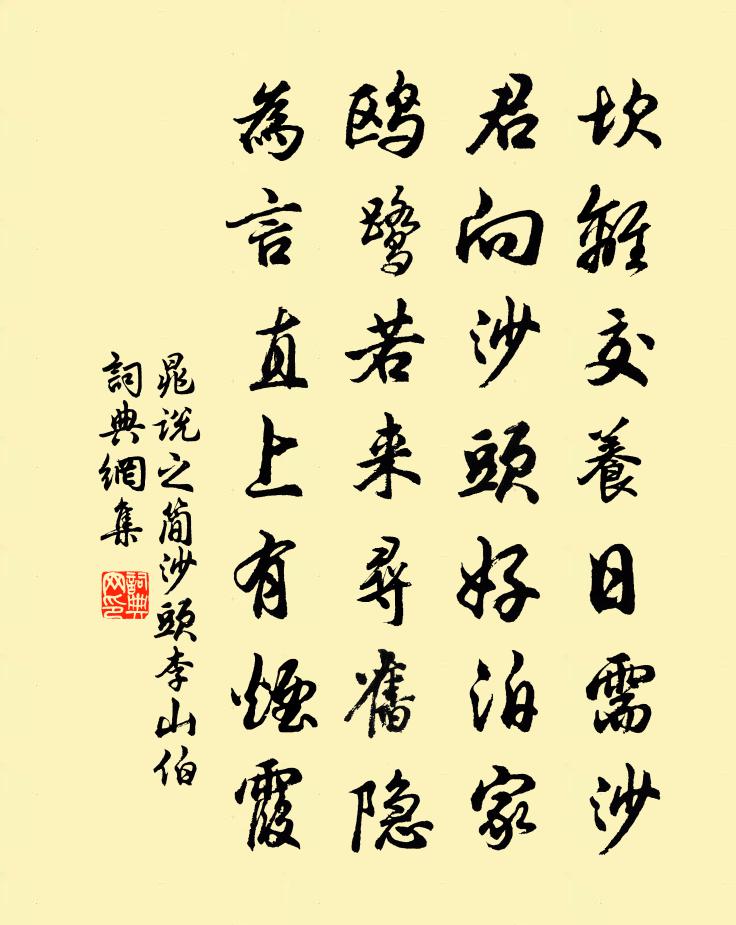 坎離交養日需沙
君向沙頭好泊家
鸥鹭若来尋舊隐
為言直上有煙霞
晁说之簡沙頭李山伯
詞典網集
詞典网印